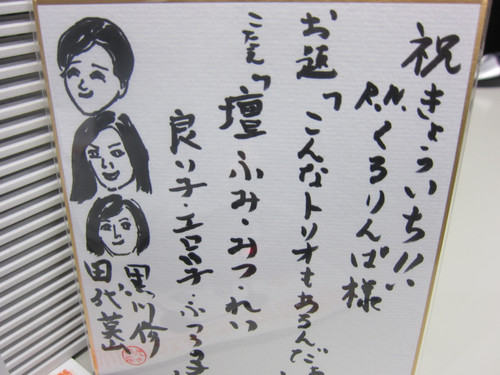 祝きょういち!!
R.N.くろりんぱ様
お題「こんなトリオもあるんだぁ
こたえ「壇ふみ・みつ・れい
良い子・エロい子・ふつうの子
黒川修
田代墓山